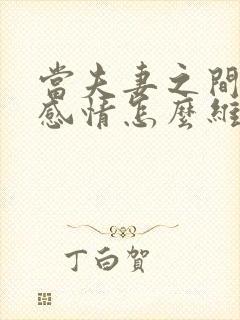 當夫妻之間
感情怎麼維
丁白賀